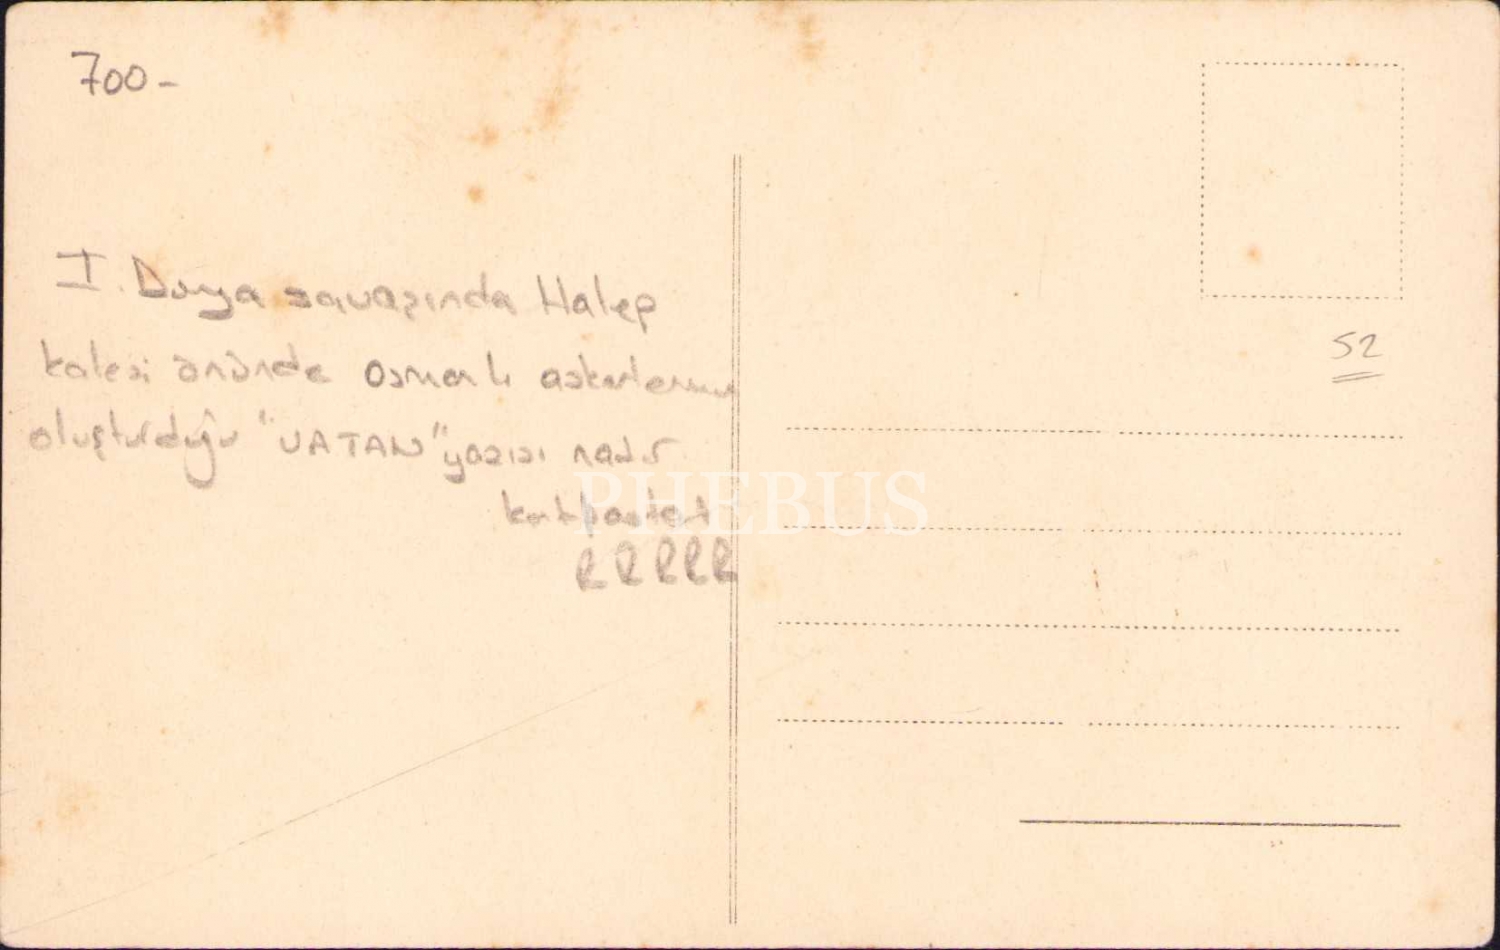 700-
I. Dünya savaşında Halep
kalesi önünde Osmanlı askerlerinin
oluşturduğu "VATAN" yazısı nadir
kartpostal
RRRRR
52
PHEBUS